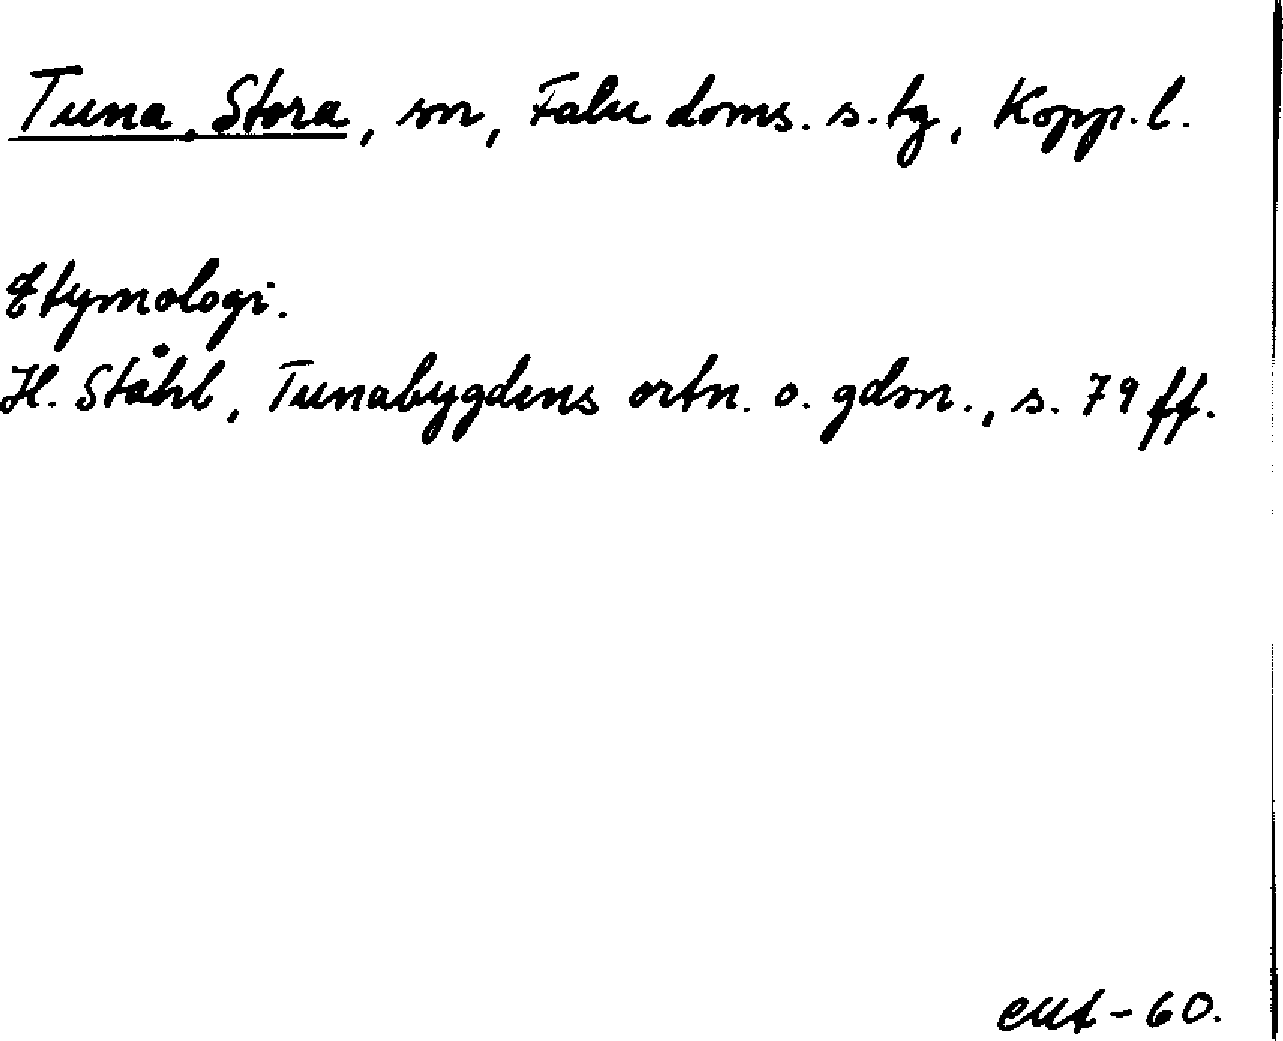 Tuna, Stora, sn, Falu doms. s. tg, Kopp. l.
Etymologi.
H. Ståhl, Tunabygdens ortn. o. gdsn., s. 79 ff.
-60.